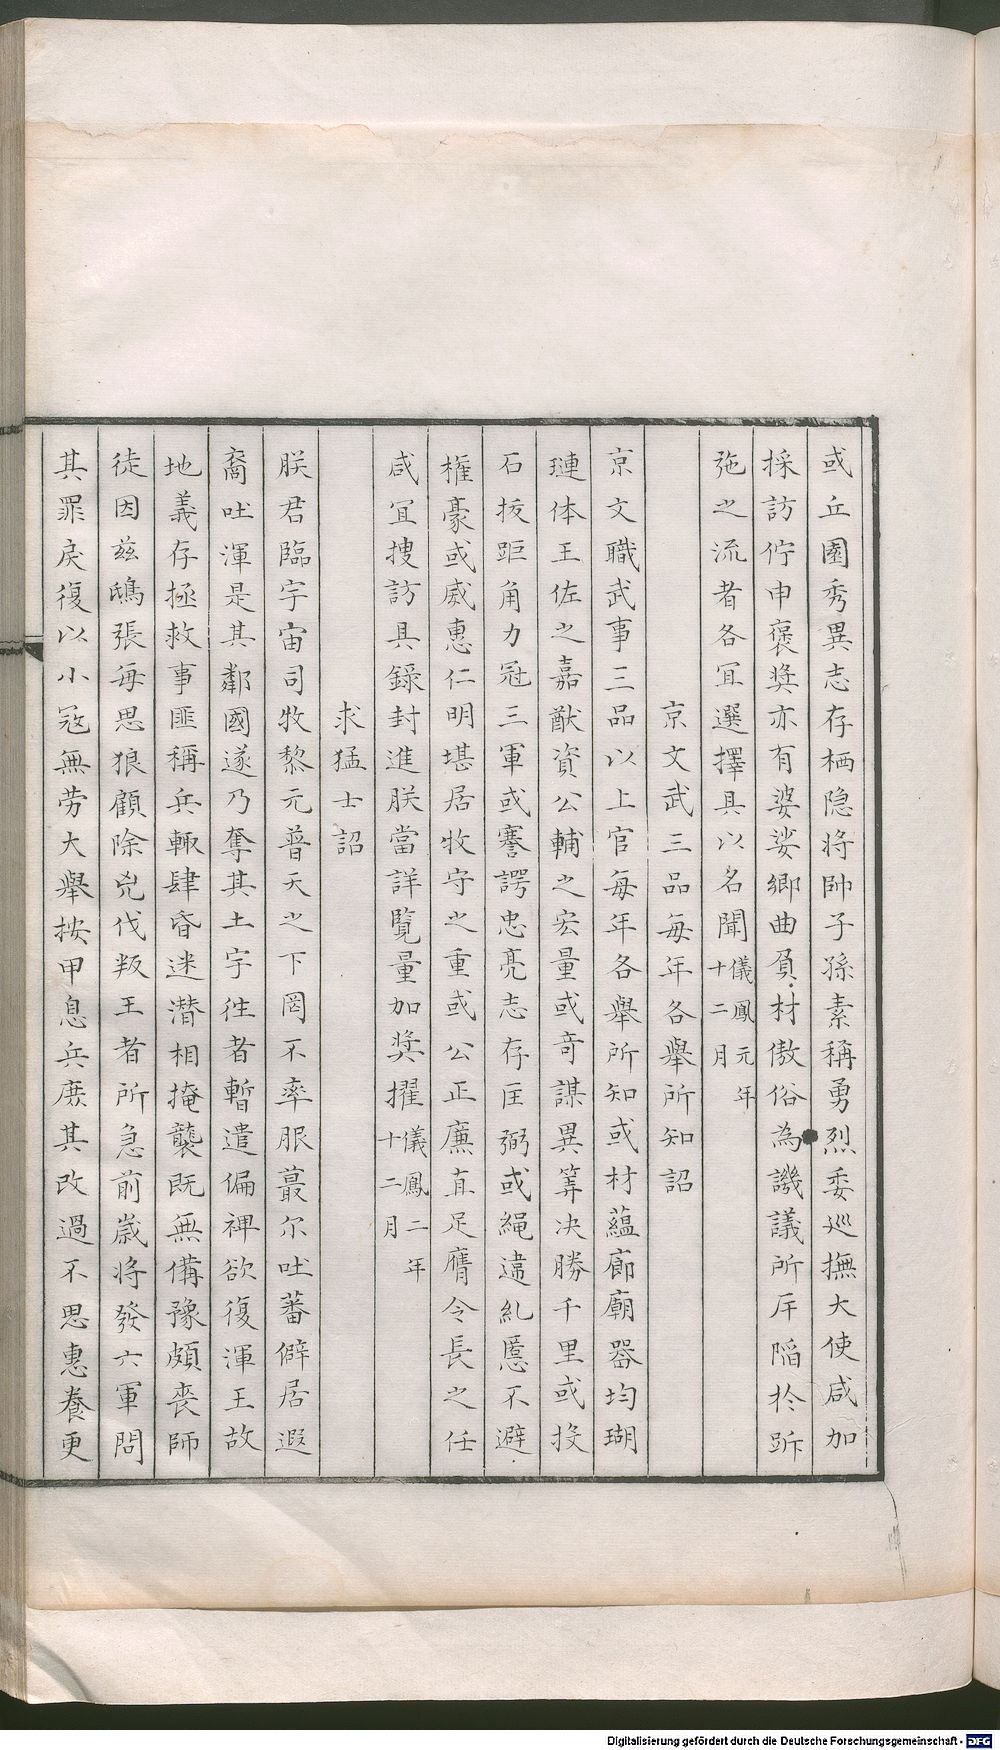 或丘園秀異志存栖隐將帥子孫素稱勇烈委巡撫大使咸加
採訪佇申褒奨亦有婆娑鄉曲負材傲俗為譏議所斥陷於跅
弛之流者各宜選擇具以名聞儀鳳元年十二月
京文武三品每年各舉所知詔
京文職武事三品以上官每年各舉所知或材蘊廊廟器均瑚
璉体王佐之嘉猷資公輔之宏量或竒謀異筭决勝千里或投
石拔距角力冠三軍或謇諤忠亮志存匡弼或繩違糺慝不避
權豪或威惠仁明堪居牧守之重或公正廉直足膺令長之任
咸宜捜訪具錄封進朕當詳覽量加奨擢儀鳳二年十二月
求猛士詔
朕君臨宇宙司牧黎元普天之下罔不率服蕞尔吐蕃僻居遐
裔吐渾是其鄰國遂乃奪其土宇徃者暫遣偏裨欲復渾王故
地義存拯救事匪稱兵輙肆昏迷潜相掩襲既無備豫頗喪師
徒因兹鴟張每思狼顧除兇伐叛王者所急前嵗將發六軍問
其罪戾復以小冦無劳大舉按甲息兵庶其改過不思惠養更
Digitalisierung gefördert durch die Deutsche Forschungsgemeinschaft - DFG